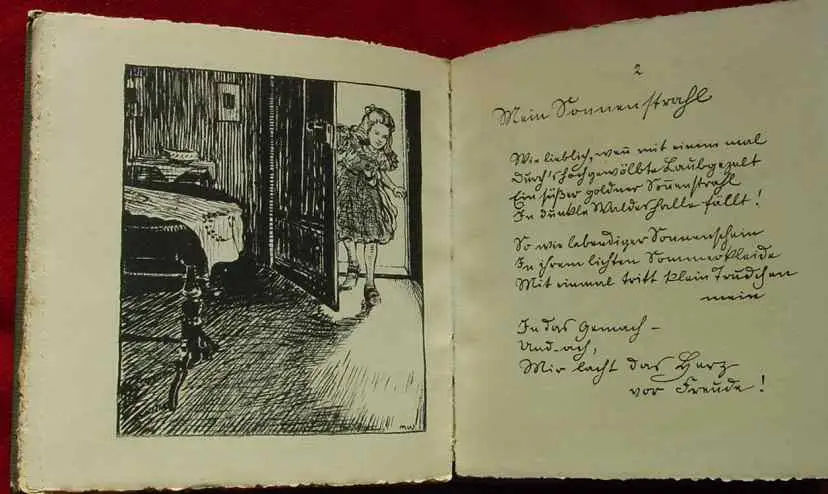 MW
2
Mein Sonnenstrahl
Wie lieblich, weñ mit einem mal
Durch's hochgewölbte Laubgezelt
Ein süßer goldner Soñenstrahl
In dunkle Waldeshalle fällt!
So wie lebendiger Sonnenschein
In ihrem lichten Sommerkleide
Mit einmal tritt klein Trudchen
mein
In das Gemach –
Und – ach,
Mir lacht das Herz
vor Freude!